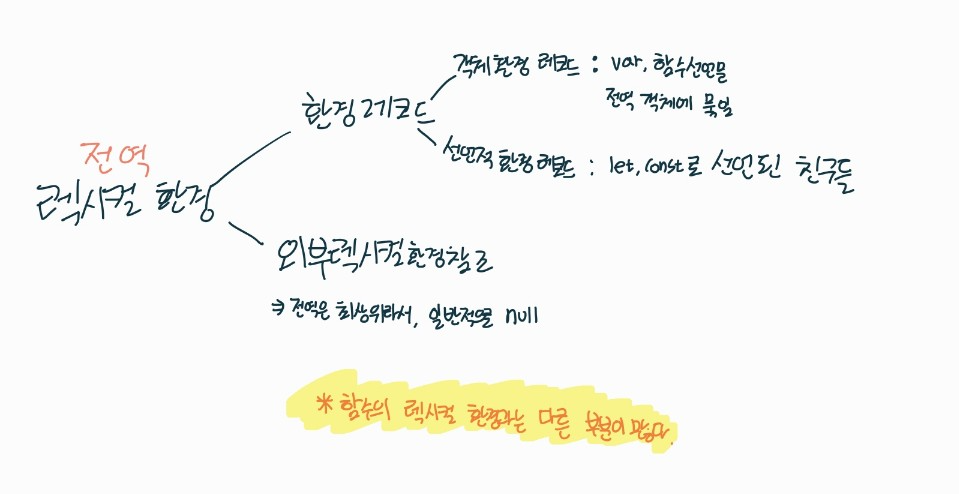 전역
렉시컬 환경
환경 레코드
객체 환경 레코드 : var, 함수선언문
전역 객체에 묶임
선언적 환경 레코드 : let, const로 선언된 친구들
외부 렉시컬 환경 참조
→ 전역은 최상위라서, 일반적으로 null
* 함수의 렉시컬 환경과는 다른 부분이 많다.